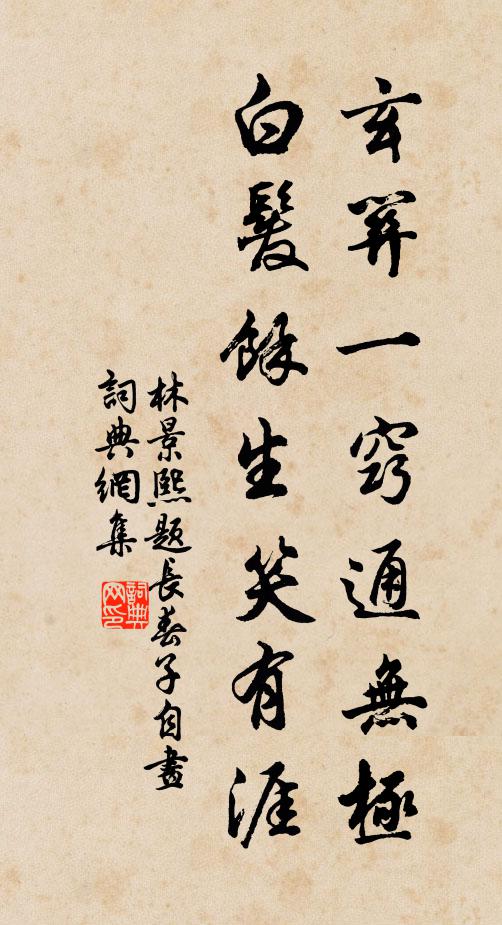 玄關一竅通無極
白髮餘生笑有涯
林景熙題長春子自畫
詞典網集
詞典
网印